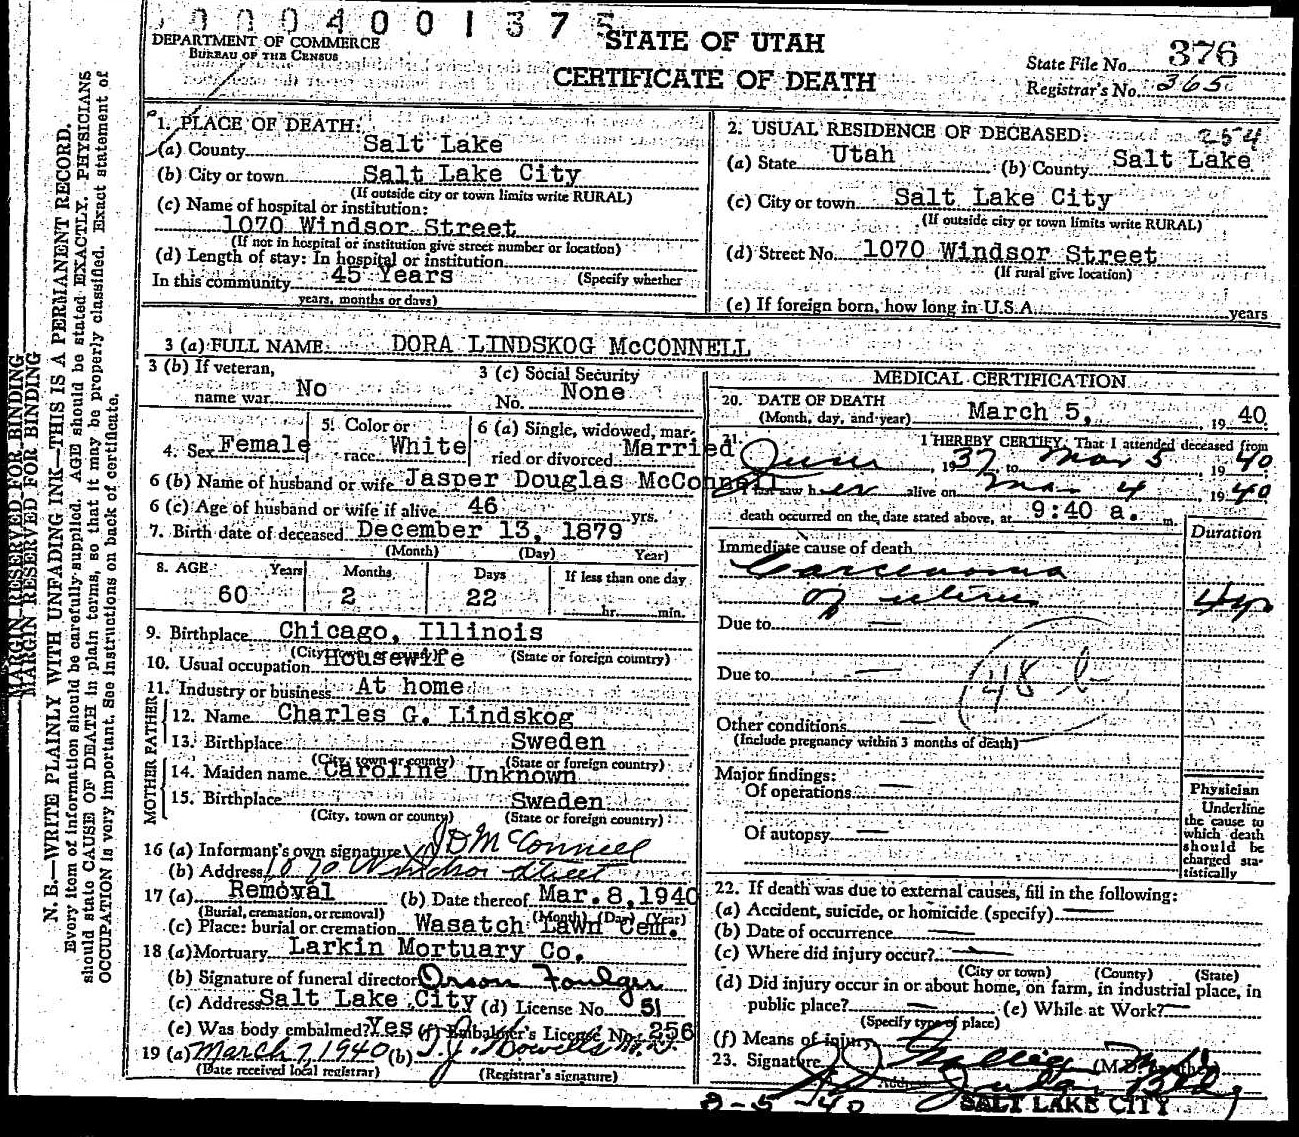 0 0 0 4 0 0 1 3 7 5
DEPARTMENT OF COMMERCE
BUREAU OF THE CENSUS
STATE OF UTAH
CERTIFICATE OF DEATH
State File No. 376
Registrar's No. 365
MARGIN RESERVED FOR BINDING
MARGIN RESERVED FOR BINDING
N. B.—WRITE PLAINLY WITH UNFADING INK—THIS IS A PERMANENT RECORD.
Every item of information should be carefully supplied. AGE should be stated EXACTLY. PHYSICIANS
should state CAUSE OF DEATH in plain terms, so that it may be properly classified. Exact statement of
OCCUPATION is very important. See instructions on back of certificate.
1. PLACE OF DEATH:
(a) County Salt Lake
(b) City or town Salt Lake City
(If outside city or town limits write RURAL)
(c) Name of hospital or institution:
1070 Windsor Street
(If not in hospital or institution give street number or location)
(d) Length of stay: In hospital or institution
In this community 45 Years (Specify whether
years, months or days)
2. USUAL RESIDENCE OF DECEASED: 254
(a) State Utah (b) County Salt Lake
(c) City or town Salt Lake City
(If outside city or town limits write RURAL)
(d) Street No. 1070 Windsor Street
(If rural give location)
(e) If foreign born, how long in U.S.A. years
3 (a) FULL NAME DORA LINDSKOG McCONNELL
3 (b) If veteran,
name war No
3 (c) Social Security
No. None
4. Sex Female
5. Color or
race White
6 (a) Single, widowed, mar-
ried or divorced Married
6 (b) Name of husband or wife Jasper Douglas McConnell
6 (c) Age of husband or wife if alive 46 yrs.
7. Birth date of deceased December 13, 1879
(Month) (Day) Year)
8. AGE Years Months Days If less than one day
60 2 22 hr. min.
9. Birthplace Chicago, Illinois
(City, town or county) (State or foreign country)
10. Usual occupation Housewife
11. Industry or business At home
FATHER
12. Name Charles G. Lindskog
13. Birthplace Sweden
(City, town or county) (State or foreign country)
MOTHER
14. Maiden name Caroline Unknown
15. Birthplace Sweden
(City, town or county) (State or foreign country)
16 (a) Informant's own signature J D McConnell
(b) Address 1070 Windsor Street
17 (a) Removal (b) Date thereof Mar. 8, 1940
(Burial, cremation, or removal) (Month) (Day) (Year)
(c) Place: burial or cremation Wasatch Lawn Cem.
18 (a) Mortuary Larkin Mortuary Co.
(b) Signature of funeral director Orson Foulger
(c) Address Salt Lake City (d) License No. 51
(e) Was body embalmed? Yes (f) Embalmer's License No. 256
19 (a) March 7, 1940 (b) T. J. Howells M.D.
(Date received local registrar) (Registrar's signature)
MEDICAL CERTIFICATION
20. DATE OF DEATH
(Month, day, and year) March 5, 19 40
21. I HEREBY CERTIFY, That I attended deceased from
June, 1937, to Mar 5 19 40
I last saw her alive on Mar 4 19 40
death occurred on the date stated above, at 9:40 a. m.
Duration
Immediate cause of death
Carcinoma
of uterus 4yr
Due to —
Due to —
48 b
Other conditions —
(Include pregnancy within 3 months of death)
Major findings:
Of operations —
Of autopsy —
Physician
Underline
the cause to
which death
should be
charged sta-
tistically
22. If death was due to external causes, fill in the following:
(a) Accident, suicide, or homicide (specify) —
(b) Date of occurrence —
(c) Where did injury occur? —
(City or town) (County) (State)
(d) Did injury occur in or about home, on farm, in industrial place, in
public place? — (e) While at Work? —
(Specify type of place)
(f) Means of injury
23. Signature (M.D. or other)
Address Judge Bldg
3-5-40 SALT LAKE CITY